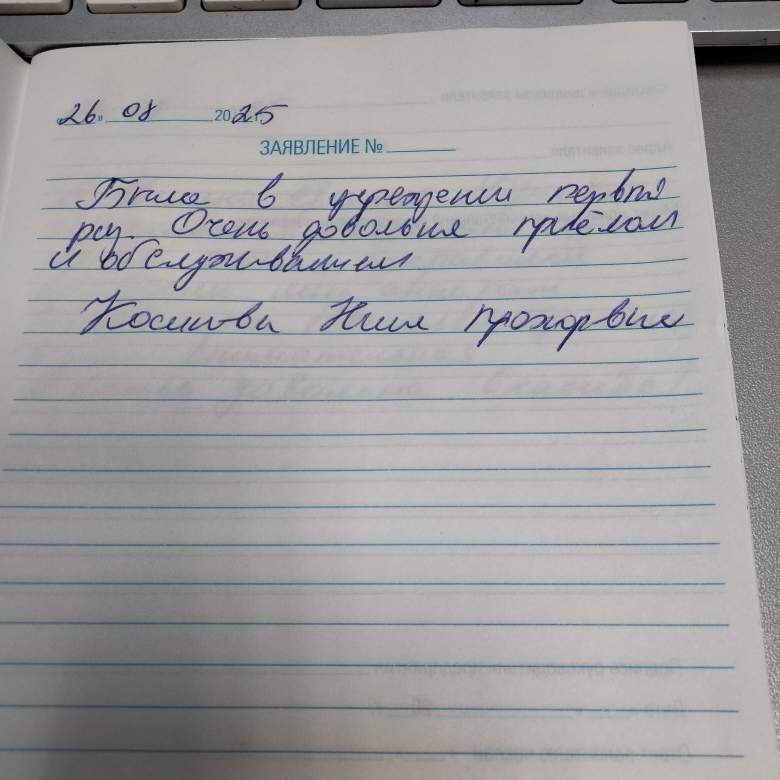 «26» 08 2025
ЗАЯВЛЕНИЕ №
Была в учреждении первый
раз. Очень довольна приёмом
и обслуживанием
Нина Прохоровна